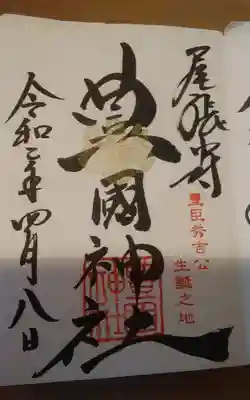 尾張
豊臣秀吉公
生誕之地
豊國神社
令和二年四月八日